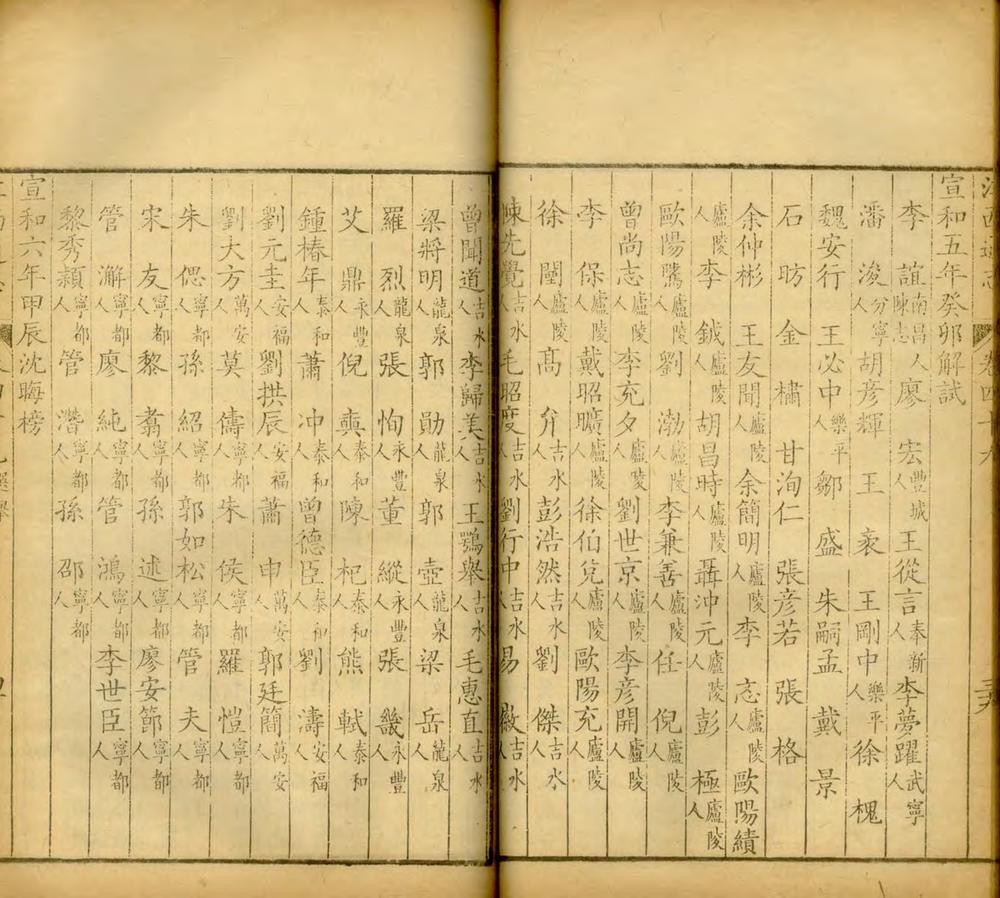 江西通志 卷四十九
宣和五年癸卯解試
李誼南昌人陳志 廖宏豐城人 王從言奉新人 李夢躍武寧人
潘浚分寧人 胡彦輝 王衮 王剛中樂平人 徐槐
魏安行 王必中樂平人 鄒盛 朱嗣孟 戴景
石昉 金橚 甘洵仁 張彦若 張格
余仲彬 王友聞廬陵人 余簡明廬陵人 李忞廬陵人 歐陽績
廬陵人 李鉞廬陵人 胡昌時廬陵人 聶沖元廬陵人 彭極廬陵人
歐陽騰廬陵人 劉渤廬陵人 李兼善廬陵人 任倪廬陵人
曾尚志廬陵人 李充夕廬陵人 劉世京廬陵人 李彦開廬陵人
李保廬陵人 戴昭曠廬陵人 徐伯兌廬陵人 歐陽充廬陵人
徐閶廬陵人 髙允吉水人 彭浩然吉水人 劉傑吉水人
陳先覺吉水人 毛昭度吉水人 劉行中吉水人 易徽吉水人
曾聞道吉水人 李歸美吉水人 王鶚舉吉水人 毛惠直吉水人
梁將明龍泉人 郭勛龍泉人 郭壺龍泉人 梁岳龍泉人
羅烈龍泉人 張恂永豐人 董縱永豐人 張畿永豐人
艾鼎永豐人 倪㒹泰和人 陳杞泰和人 熊軾泰和人
鍾椿年泰和人 蕭冲泰和人 曾德臣泰和人 劉濤安福人
劉元圭安福人 劉拱辰安福人 蕭申萬安人 郭廷簡萬安人
劉大方萬安人 莫儔寧都人 朱侯寧都人 羅愷寧都人
朱偲寧都人 孫紹寧都人 郭如松寧都人 管夫寧都人
宋友寧都人 黎翥寧都人 孫述寧都人 廖安節寧都人
管澥寧都人 廖純寧都人 管鴻寧都人 李世臣寧都人
黎秀穎寧都人 管濳寧都人 孫邵寧都人
宣和六年甲辰沈晦榜